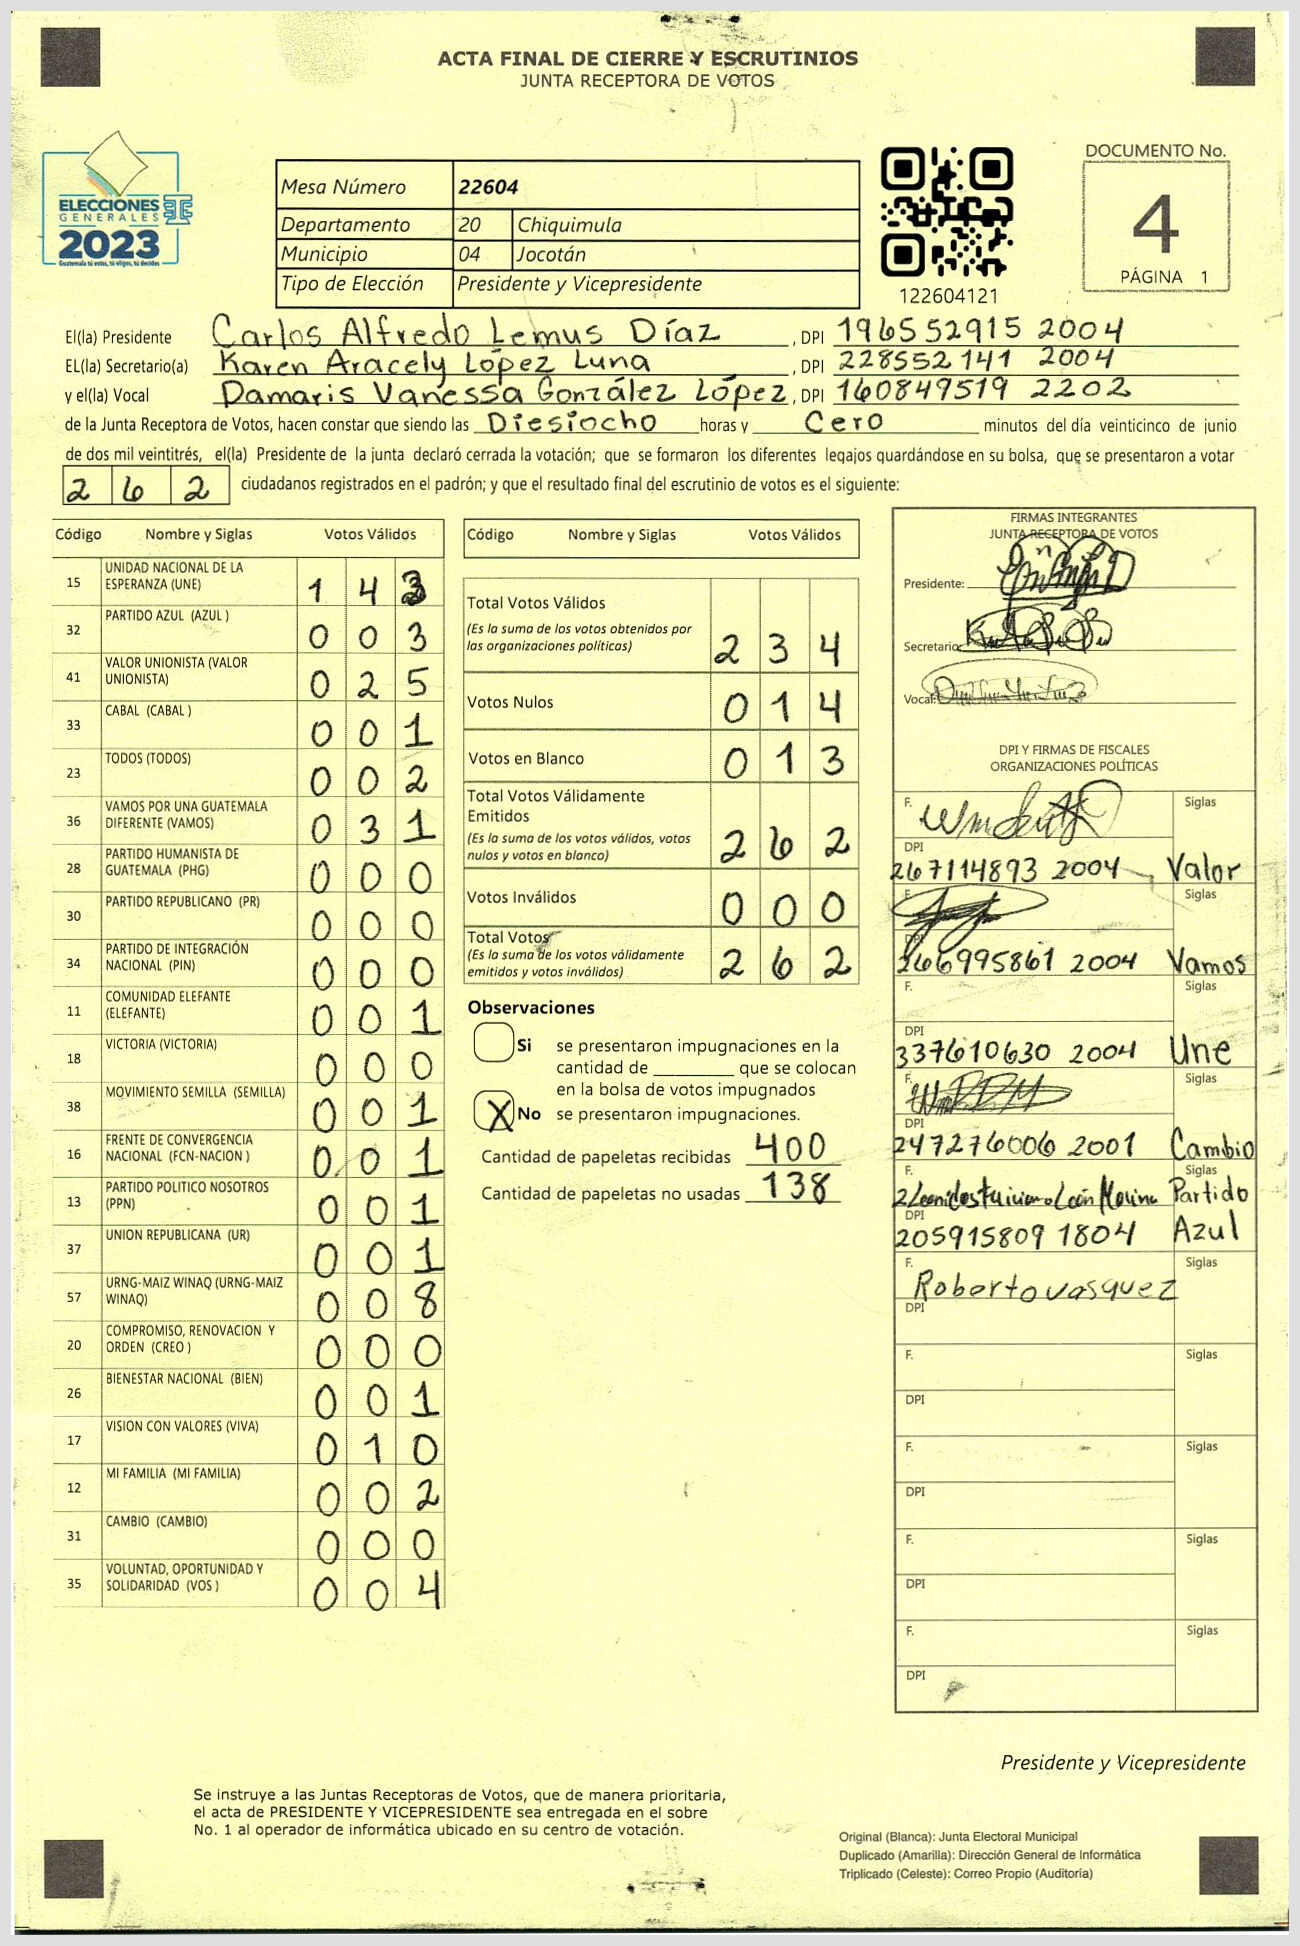 ACTA FINAL DE CIERRE Y ESCRUTINIOS
JUNTA RECEPTORA DE VOTOS
ELECCIONES
GENERALES
2023
Guatemala tú votas, tú eliges, tú decides
Mesa Número 22604
Departamento 20 Chiquimula
Municipio 04 Jocotán
Tipo de Elección Presidente y Vicepresidente
122604121
DOCUMENTO No.
4
PÁGINA 1
El(la) Presidente Carlos Alfredo Lemus Díaz, DPI 196552915 2004
EL(la) Secretario(a) Karen Aracely López Luna, DPI 228552141 2004
y el(la) Vocal Damaris Vanessa González López, DPI 160849519 2202
de la Junta Receptora de Votos, hacen constar que siendo las Diesiocho horas y Cero minutos del día veinticinco de junio
de dos mil veintitrés, el(la) Presidente de la junta declaró cerrada la votación; que se formaron los diferentes legajos guardándose en su bolsa, que se presentaron a votar
262 ciudadanos registrados en el padrón; y que el resultado final del escrutinio de votos es el siguiente:
Código Nombre y Siglas Votos Válidos
15 UNIDAD NACIONAL DE LA ESPERANZA (UNE) 1 4 3
32 PARTIDO AZUL (AZUL ) 0 0 3
41 VALOR UNIONISTA (VALOR UNIONISTA) 0 2 5
33 CABAL (CABAL ) 0 0 1
23 TODOS (TODOS) 0 0 2
36 VAMOS POR UNA GUATEMALA DIFERENTE (VAMOS) 0 3 1
28 PARTIDO HUMANISTA DE GUATEMALA (PHG) 0 0 0
30 PARTIDO REPUBLICANO (PR) 0 0 0
34 PARTIDO DE INTEGRACIÓN NACIONAL (PIN) 0 0 0
11 COMUNIDAD ELEFANTE (ELEFANTE) 0 0 1
18 VICTORIA (VICTORIA) 0 0 0
38 MOVIMIENTO SEMILLA (SEMILLA) 0 0 1
16 FRENTE DE CONVERGENCIA NACIONAL (FCN-NACION ) 0 0 1
13 PARTIDO POLITICO NOSOTROS (PPN) 0 0 1
37 UNION REPUBLICANA (UR) 0 0 1
57 URNG-MAIZ WINAQ (URNG-MAIZ WINAQ) 0 0 8
20 COMPROMISO, RENOVACION Y ORDEN (CREO ) 0 0 0
26 BIENESTAR NACIONAL (BIEN) 0 0 1
17 VISION CON VALORES (VIVA) 0 1 0
12 MI FAMILIA (MI FAMILIA) 0 0 2
31 CAMBIO (CAMBIO) 0 0 0
35 VOLUNTAD, OPORTUNIDAD Y SOLIDARIDAD (VOS ) 0 0 4
Código Nombre y Siglas Votos Válidos
Total Votos Válidos
(Es la suma de los votos obtenidos por
las organizaciones políticas) 2 3 4
Votos Nulos 0 1 4
Votos en Blanco 0 1 3
Total Votos Válidamente
Emitidos
(Es la suma de los votos válidos, votos
nulos y votos en blanco) 2 6 2
Votos Inválidos 0 0 0
Total Votos
(Es la suma de los votos válidamente
emitidos y votos inválidos) 2 6 2
Observaciones
Si se presentaron impugnaciones en la
cantidad de ________ que se colocan
en la bolsa de votos impugnados
X No se presentaron impugnaciones.
Cantidad de papeletas recibidas 400
Cantidad de papeletas no usadas 138
FIRMAS INTEGRANTES
JUNTA RECEPTORA DE VOTOS
Presidente:
Secretario:
Vocal:
DPI Y FIRMAS DE FISCALES
ORGANIZACIONES POLÍTICAS
F. Siglas
DPI
267114893 2004 Valor
F. Siglas
DPI
266995861 2004 Vamos
F. Siglas
DPI
337610630 2004 Une
F. Siglas
DPI
247276006 2001 Cambio
F. Siglas
León Partido
DPI
205915809 1804 Azul
F. Siglas
Roberto vasquez
DPI
F. Siglas
DPI
F. Siglas
DPI
F. Siglas
DPI
F. Siglas
DPI
Presidente y Vicepresidente
Se instruye a las Juntas Receptoras de Votos, que de manera prioritaria,
el acta de PRESIDENTE Y VICEPRESIDENTE sea entregada en el sobre
No. 1 al operador de informática ubicado en su centro de votación.
Original (Blanca): Junta Electoral Municipal
Duplicado (Amarilla): Dirección General de Informática
Triplicado (Celeste): Correo Propio (Auditoría)